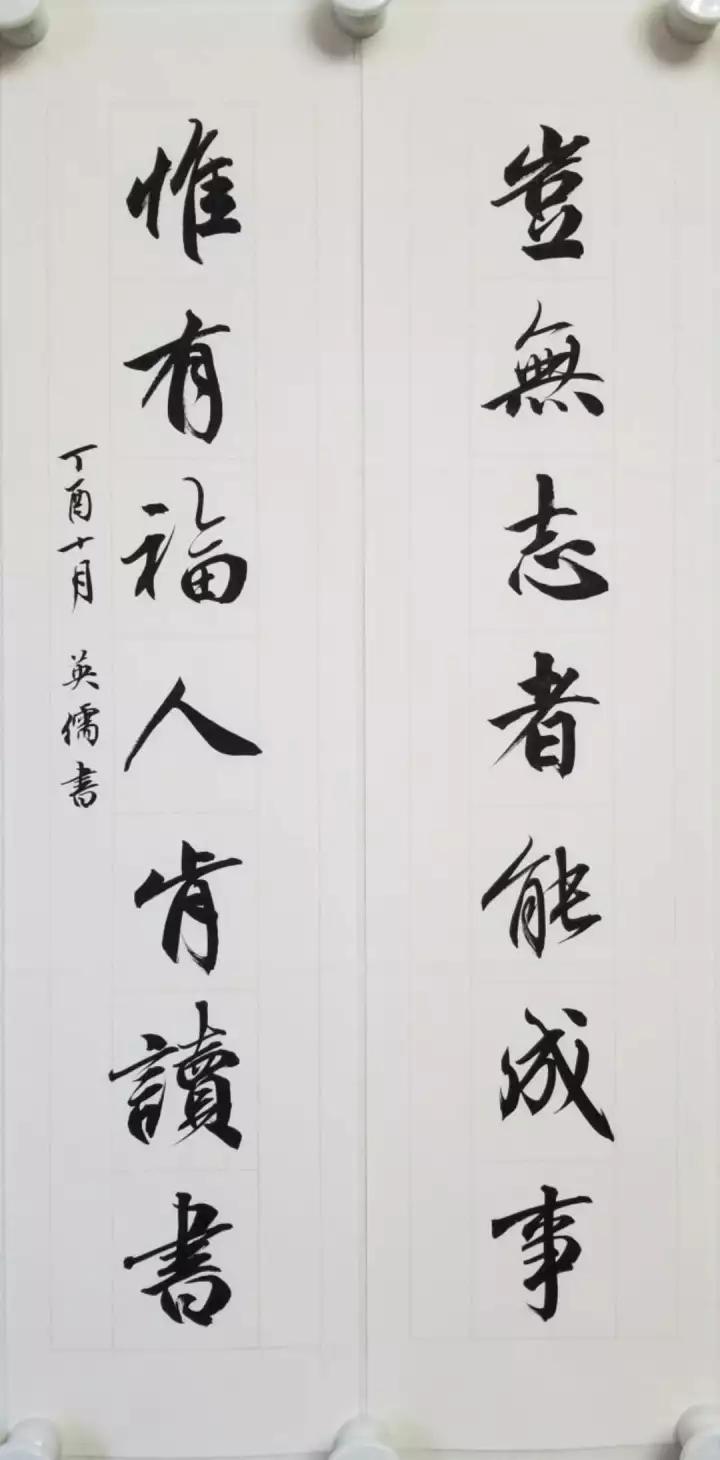 豈無志者能成事
惟有福人肯讀書
丁酉十月 英儒书